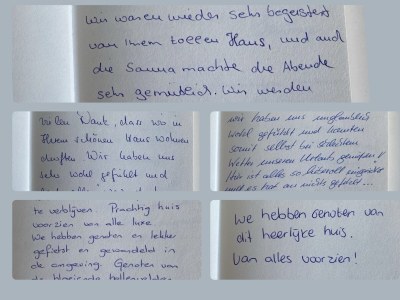 Wir waren wieder sehr begeistert
von Ihrem tollen Haus, und auch
die Sauna machte die Abende
sehr gemütlich. Wir werden
Vielen Dank, dass wir in
Ihrem schönen Haus wohnen
durften. Wir haben uns
sehr wohl gefühlt und
wir haben uns
wohl gefühlt und konnten
somit selbst bei
Wetter unseren Urlaub genießen.
Hier ist alles so liebevoll eingerichtet
und es hat an nichts gefehlt...
te verblijven. Prachtig huis
voorzien van alle luxe.
We hebben genoten en lekker
gefietst en gewandeld in
de omgeving. Genoten van
de bloeiende bollenvelden
We hebben genoten van
dit heerlijke huis.
Van alles voorzien!